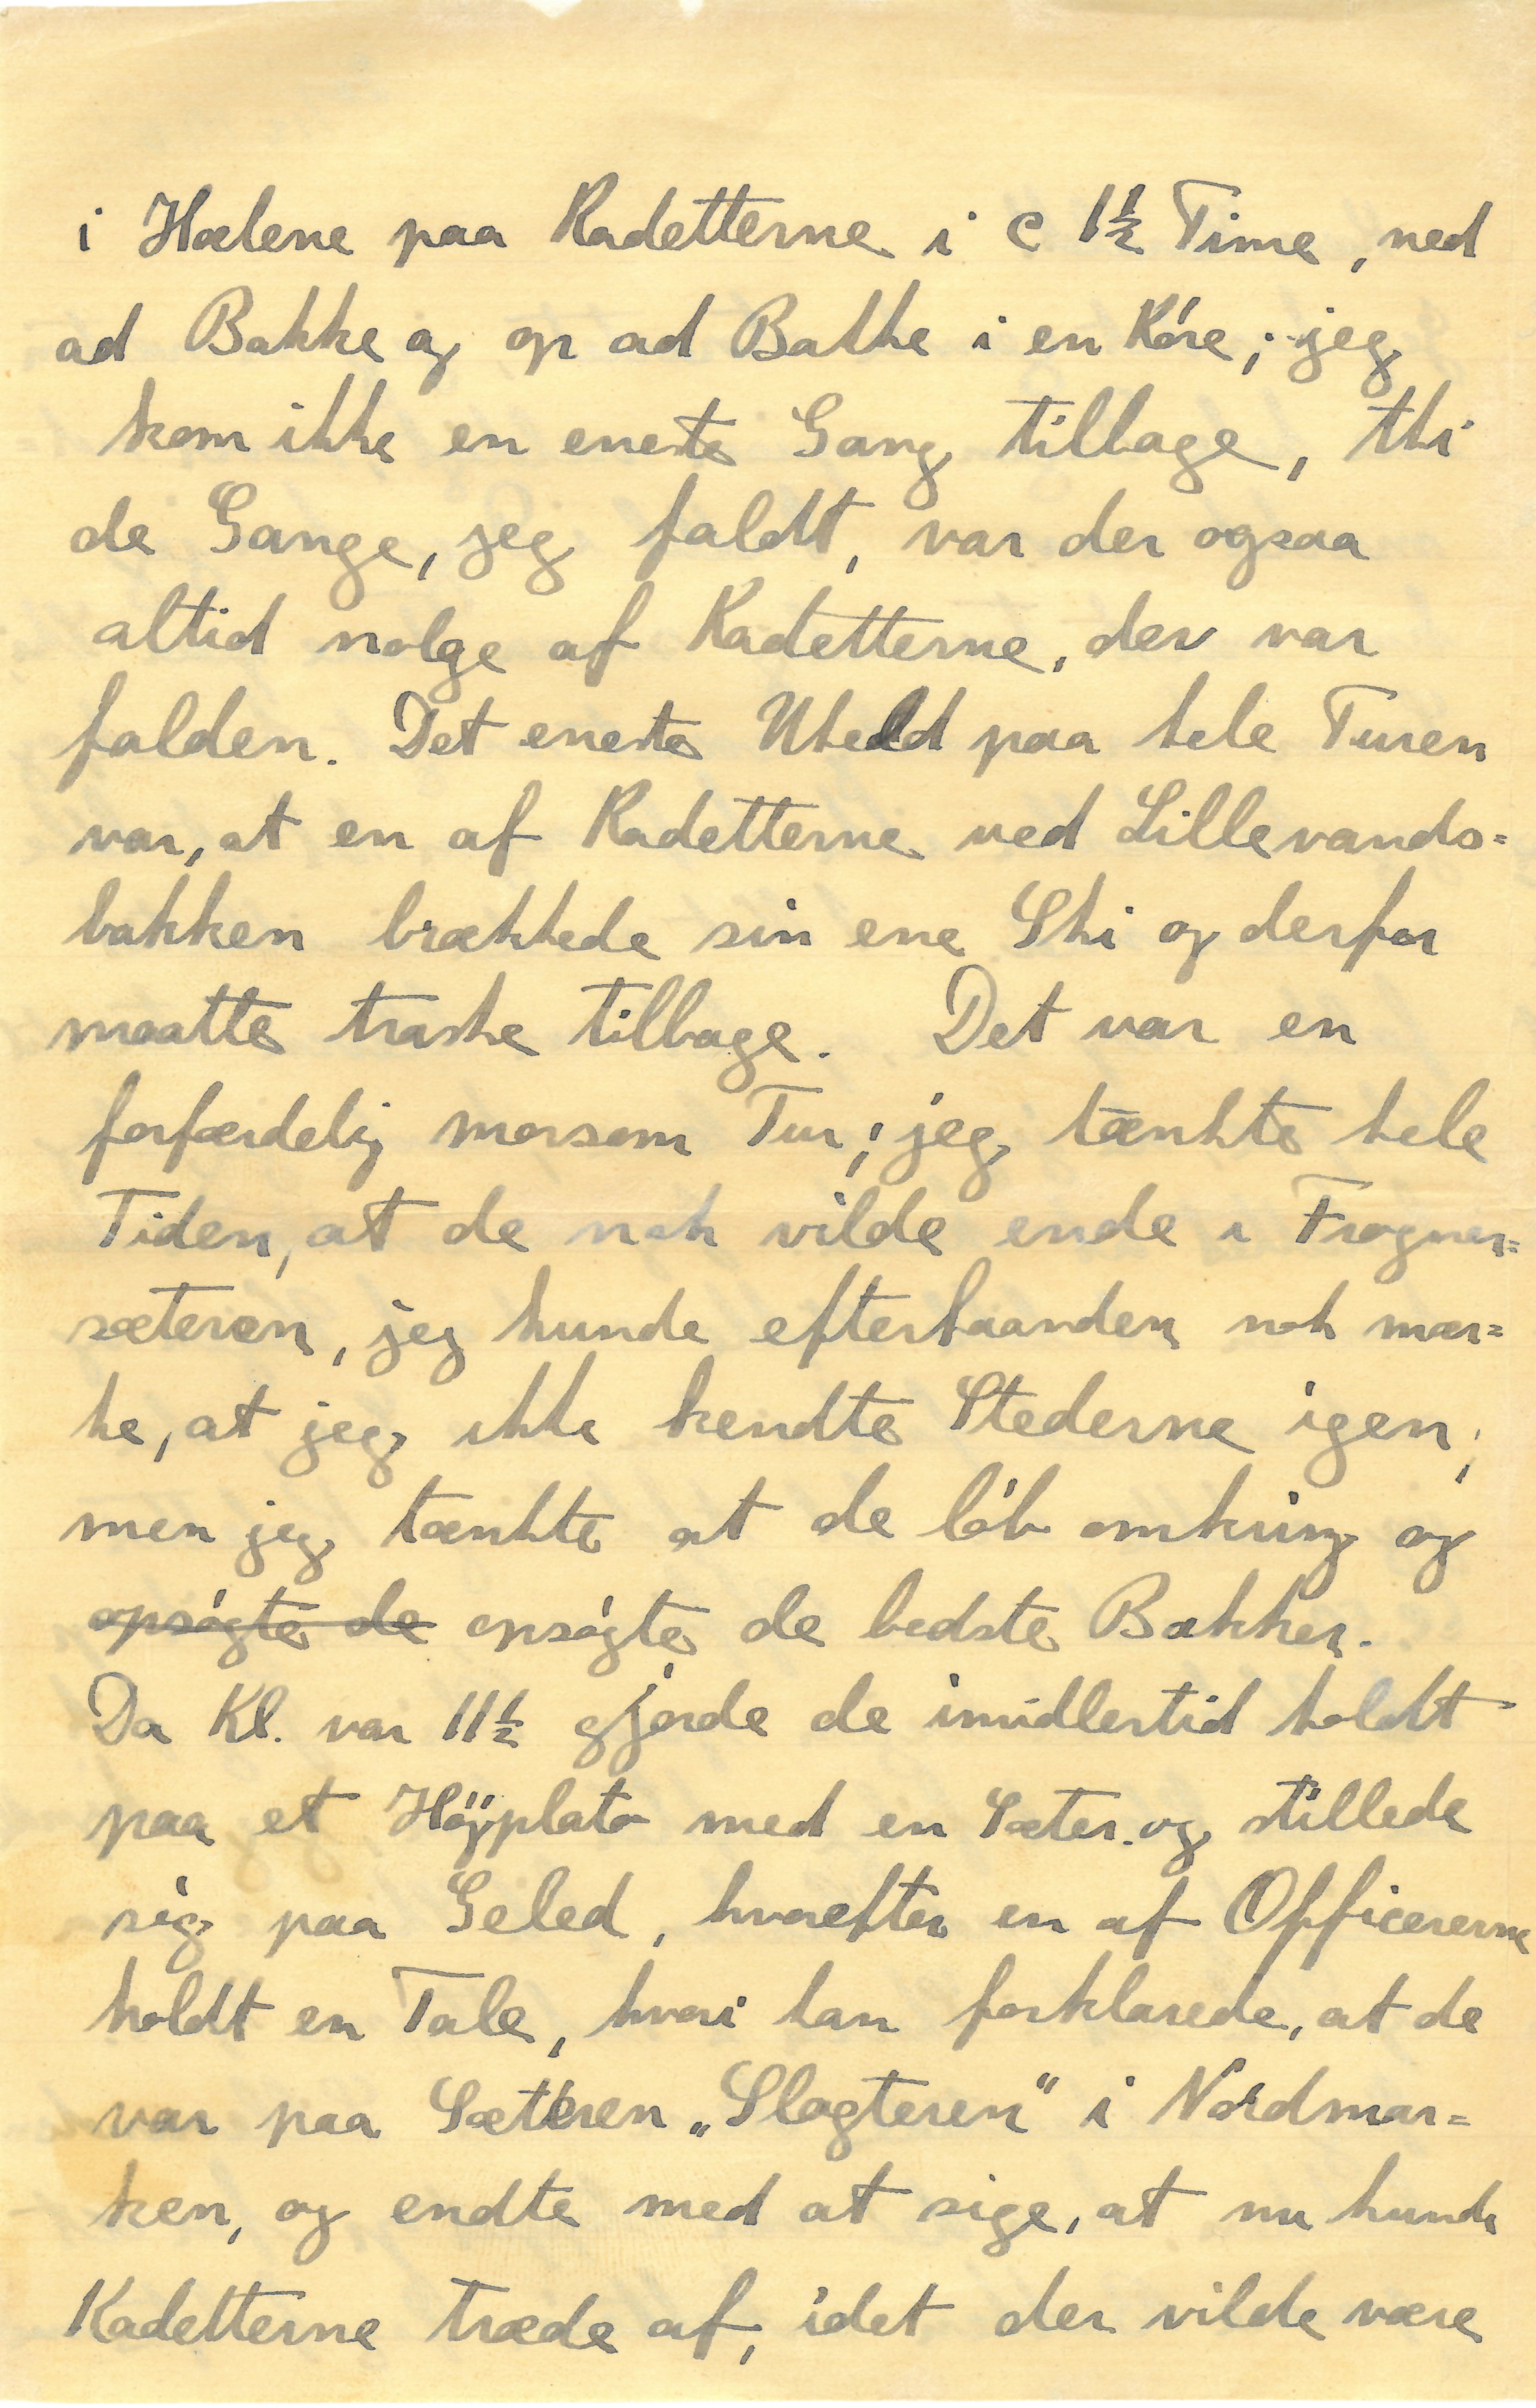 i Hælene paa Kadetterne i c 1½ Time, ned
ad Bakke og op ad Bakke i en Köre; jeg
kom ikke en eneste Gang tilbage, thi
de Gange, jeg faldt, var der ogsaa
altid nolge af Kadetterne, der var
falden. Det eneste Uheld paa hele Turen
var, at en af Kadetterne ved Lillevands=
bakken brækkede sin ene Ski og derfor
maatte traske tilbage. Det var en
forfærdelig morsom Tur; jeg tænkte hele
Tiden, at de nok vilde ende i Frogner=
sæteren, jeg kunde efterhaanden nok mær=
ke, at jeg ikke kendte Stederne igen;
men jeg tænkte at de löb omkring og
opsögte de opsögte de bedste Bakker.
Da Kl. var 11½ gjorde de imidlertid holdt
paa et Höjplato med en Sæter og stillede
sig paa Geled, hvorefter en af Officererne
holdt en Tale, hvori han forklarede, at de
var paa Sæteren „Slagteren“ i Nordmar=
ken, og endte med at sige, at nu kunde
Kadetterne træde af, idet der vilde være